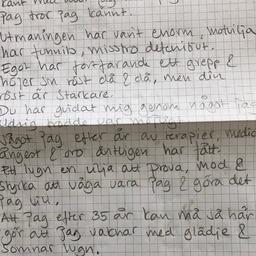 jag tror jag kännt.
Utmaningen har varit enorm, motvilja
har funnits, misstro definitivt.
Egot har fortfarande ett grepp &
höjer sn röst då & då, men din
röst är starkare.
Du har guidat mig genom något jag
Något jag efter år av terapier, medic
ångest & oro äntligen har fått.
Ett lugn en vilja att prova, mod &
styrka att våga vara jag & göra det
jag vill.
Att jag efter 35 år kan må så här
gör att jag vaknar med glädje &
somnar lugn.